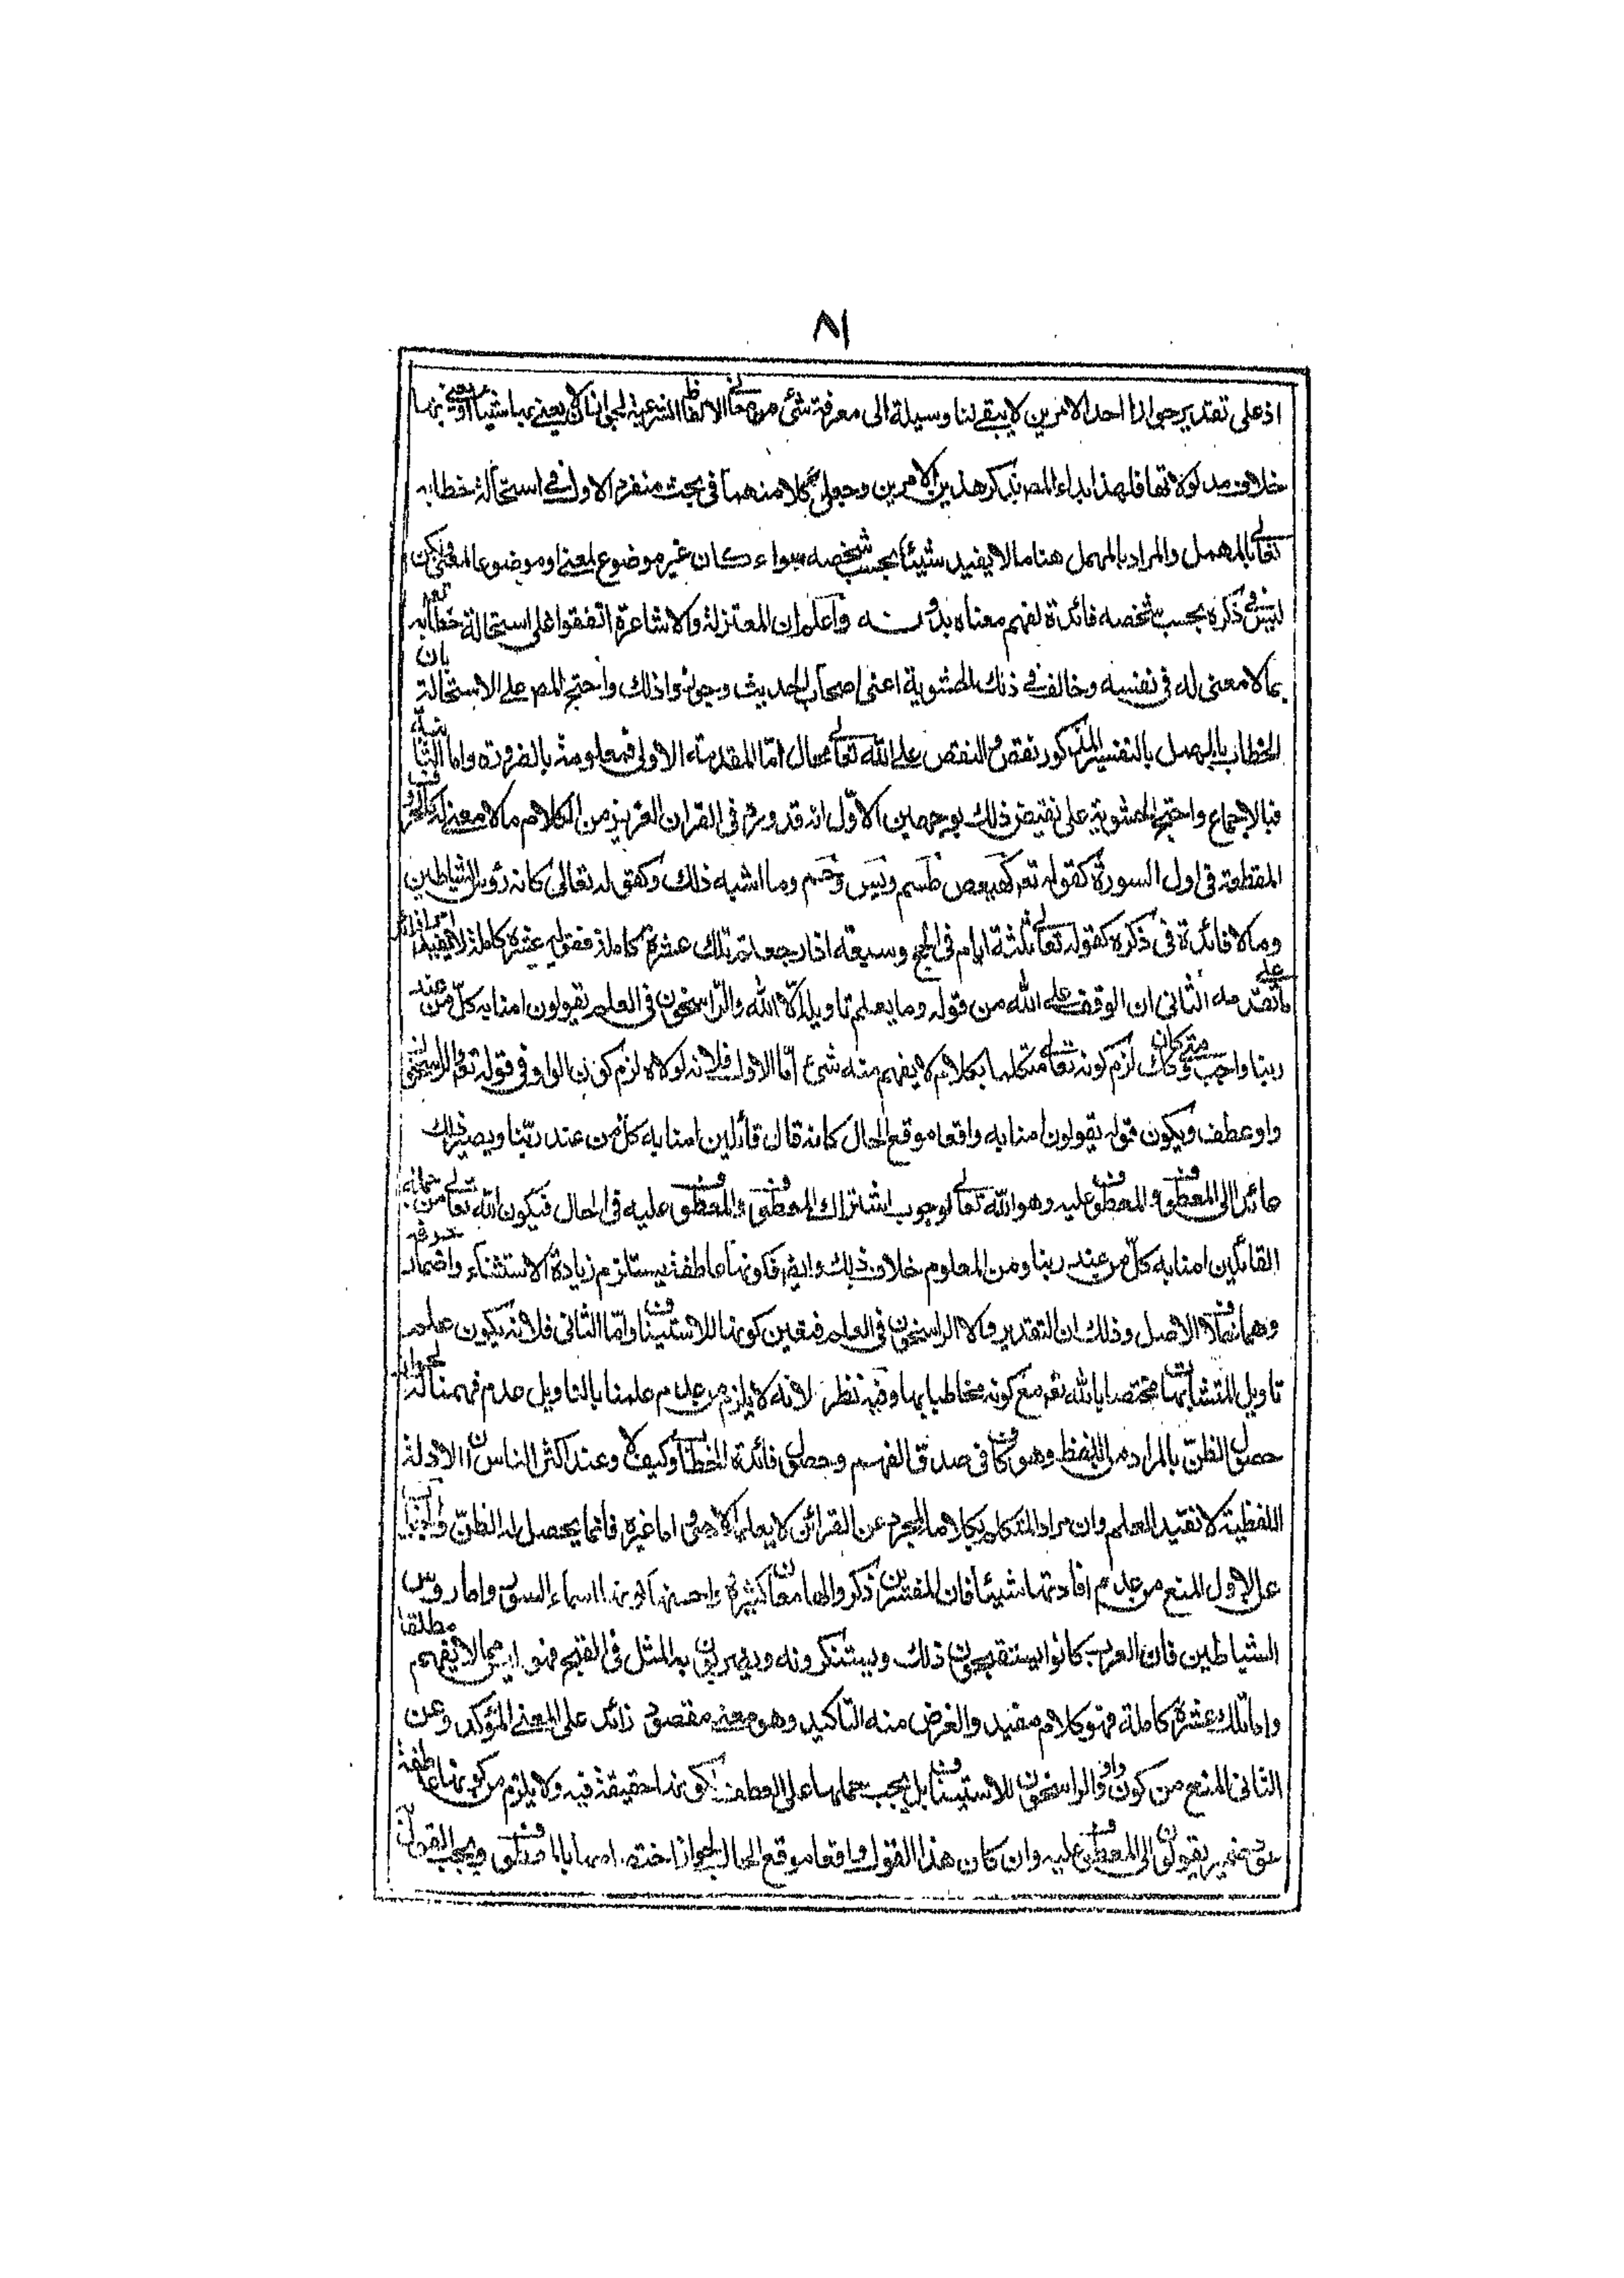 ٨١
اذ على تقدير جواز احد الامرين لا يبقى لنا وسيلة الى معرفة شئ من معانى الالفاظ الشرعية لجواز ان لا يعنى بها شيئا او يعنى بها
خلاف مدلولاتها فلهذا بداء المصر بذكر هذين الامرين وجعل كلا منهما فى بحث منفرد الاول فى استحالة خطابه
تعالى بالمهمل والمراد بالمهمل هنا ما لا يفيد شيئا بحسب شخصه سواء كان غير موضوع لمعنى او موضوعا لمعنى ولكن
ليس فى ذكره بحسب شخصه فائدة لفهم معناه بدونه واعلم ان المعتزلة والاشاعرة اتفقوا على استحالة خطابه تعم
بما لا معنى له فى نفسه وخالف فى ذلك الحشوية اعنى اصحاب الحديث وجوزوا ذلك واحتج المصر على الاستحالة بان
الخطاب بالمهمل بالتفسير المذكور نقص والنقص على الله تعالى محال اما المقدمة الاولى فمعلومة بالضرورة واما الثانية
فبالاجماع واحتج الحشوية على نقيض ذلك بوجهين الاول انه قد ورد فى القران العزيز من الكلام ما لا معنى له كالحروف
المقطعة فى اول السورة كقوله تعم كهيعص طسم ويس وحم وما اشبه ذلك وكقوله تعالى كانه رؤس الشياطين
وما لا فائدة فى ذكره كقوله تعالى ثلثة ايام فى الحج وسبعة اذا رجعتم تلك عشرة كاملة فقوله عشرة كاملة لا يفيد امرا زائدا
على ما تقدمه الثانى ان الوقف على الله من قوله وما يعلم تاويله الا الله والراسخون فى العلم يقولون امنا به كل من عند
ربنا واجب ومتى كان كك لزم كونه تعالى متكلما بكلام لا يفهم منه شئ اما الاول فلانه لولاه لزم كون الواو فى قوله تعم والراسخون
واو عطف ويكون قوله يقولون امنا به واقعا موقع الحال كانه قال قائلين امنا به كل من عند ربنا ويصير ذلك
عائدا الى المعطوف والمعطوف عليه وهو الله تعالى لوجوب اشتراك المعطوف والمعطوف عليه فى الحال فيكون الله تعالى من جملة
القائلين امنا به كل من عند ربنا ومن المعلوم خلاف ذلك وايضر فكونها عاطفة يستلزم زيادة الاستثناء واضمار حرفه
وهما خلاف الاصل وذلك ان التقدير والا الراسخون فى العلم فتعين كونها للاستيناف واما الثانى فلانه يكون علم
تاويل المتشابهات مختصا بالله تعم مع كونه مخاطبا بها وفيه نظر لانه لا يلزم من عدم علمنا بالتاويل عدم فهمنا له لجواز
حصول الظن بالمراد من اللفظ وهو كاف فى صدق الفهم وحصول فائدة الخطاب وكيف لا وعند اكثر الناس ان الادلة
اللفظية لا تفيد العلم وان مراد المتكلم بكلامه المجرد عن القرائن لا يعلمه الا هو اما غيره فانما يحصل له الظن والجواب
عن الاول المنع من عدم افادتها شيئا فان المفسرين ذكروا لها معان كثيرة واحسنها كونها اسماء السور واما روس
الشياطين فان العرب كانوا يستقبحون ذلك ويستنكرونه ويضربون به المثل فى القبح فهو ليس مما لا يفهم مطلقا
واما تلك عشرة كاملة فهو كلام مفيد والغرض منه التاكيد وهو معنى مقصود زائد على المعنى المؤكد وعن
الثانى المنع من كون واو والراسخون للاستيناف بل يجب حملها على العطف لكونها حقيقة فيه ولا يلزم من كونها عاطفة
عود ضمير يقولون الى المعطوف عليه وان كان هذا القول واقعا موقع الحال لجواز اختصاصها بالمعطوف ويجب القول ان